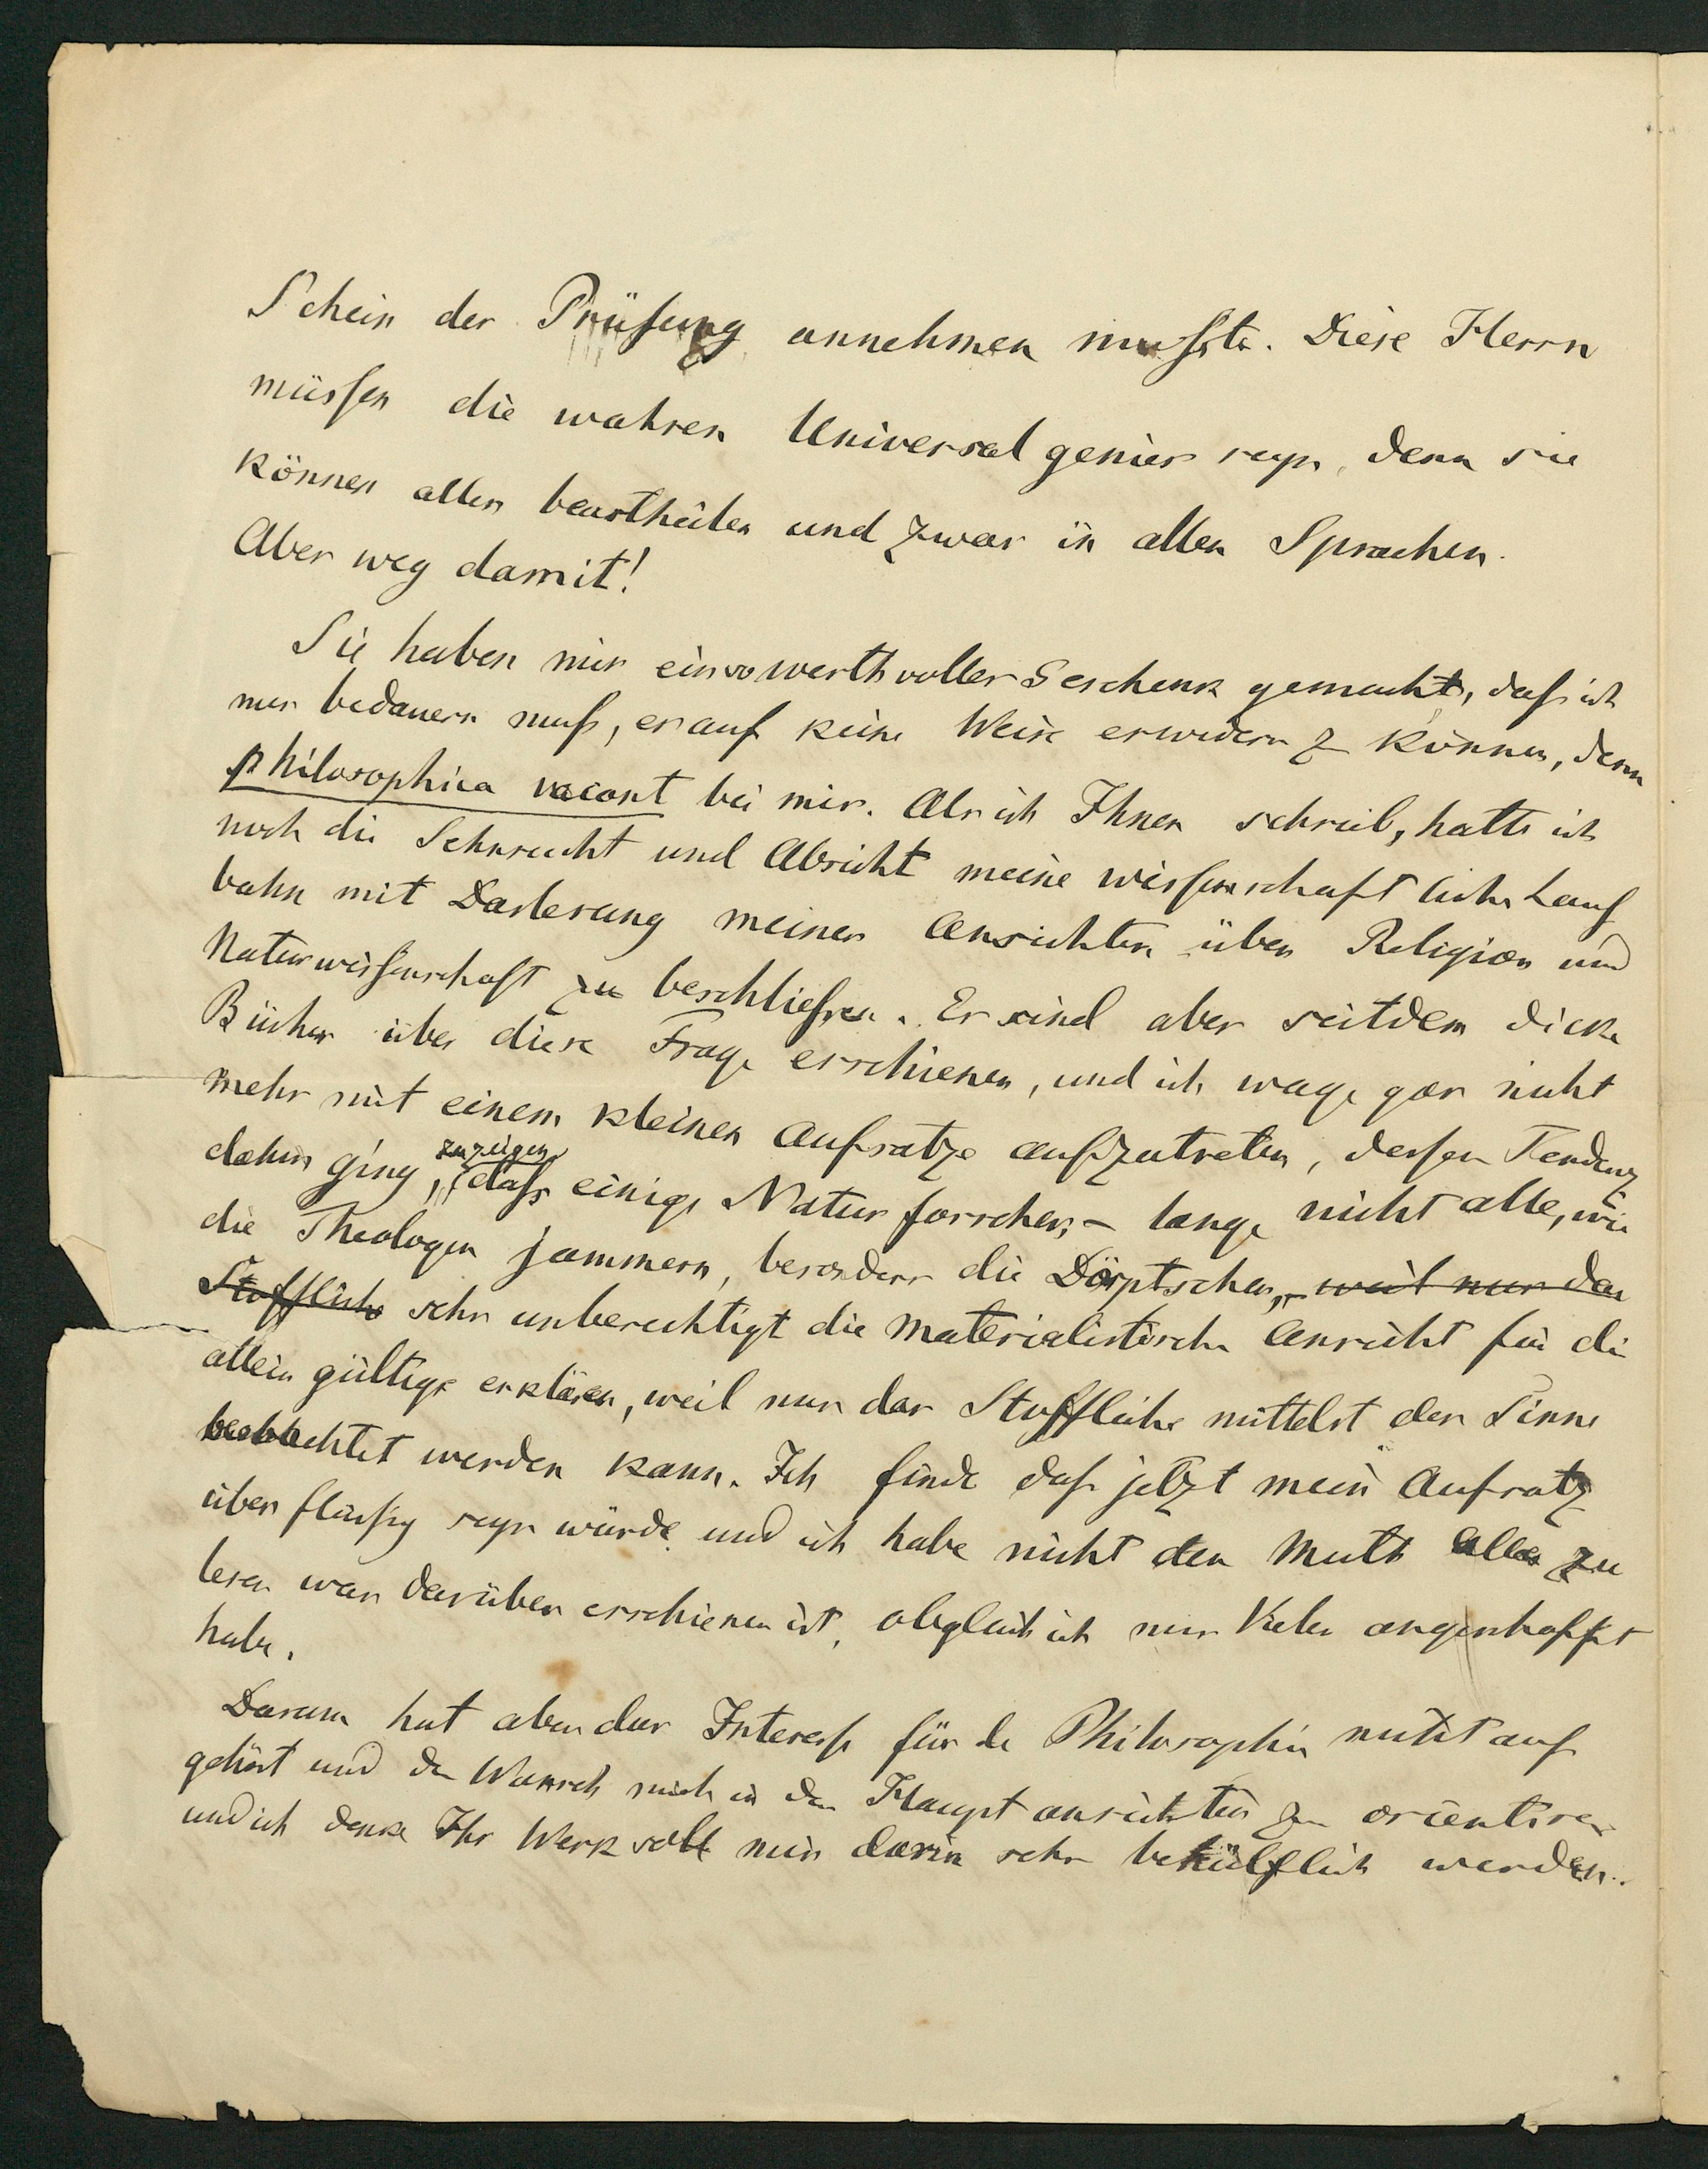 Schein der Prüfung annehmen mußte. Diese Herrn
müssen die wahren Universalgenies seyn, denn sie
können alles beurtheilen und zwar in allen Sprachen.
Aber weg damit!
Sie haben mir ein so werthvolles Geschenk gemacht, daß ich
nur bedauern muß, es auf keine Weise erwidern z können, denn
philosophica vacant bei mir. Als ich Ihnen schrieb, hatte ich
noch die Sehnsucht und Absicht meine wissenschaftliche Lauf
bahn mit Darlesung meiner Ansichten über Religion und
Naturwissenschaft zu beschließen. Es sind aber seitdem dicke
Bücher über diese Frage erschienen, und ich wage gar nicht
mehr mit einem kleinen Aufsatze aufzutreten, dessen Tendenz
dahin ging, zu zeigen, daß einige Naturforscher, – lange nicht alle, wie
die Theologen jammern, besonders die Dörptschen, – weil nur das
Stoffliche sehr unberechtigt die materialistische Ansicht für die
allein gültige erklären, weil nur das Stoffliche mittelst der Sinne
beobachtet werden kann. Ich finde daß jetzt mein Aufsatz
überflüssig seyn würde und ich habe nicht den Muth alles zu
lesen was darüber erschienen ist, obgleich ich mir Vieles angeschafft
habe.
Darum hat aber das Interesse für die Philosophie nicht auf
gehört und der Wunsch mich in den Hauptansichten zu orientiren
und ich denke Ihr Werk soll mir darin sehr behülflich werden.